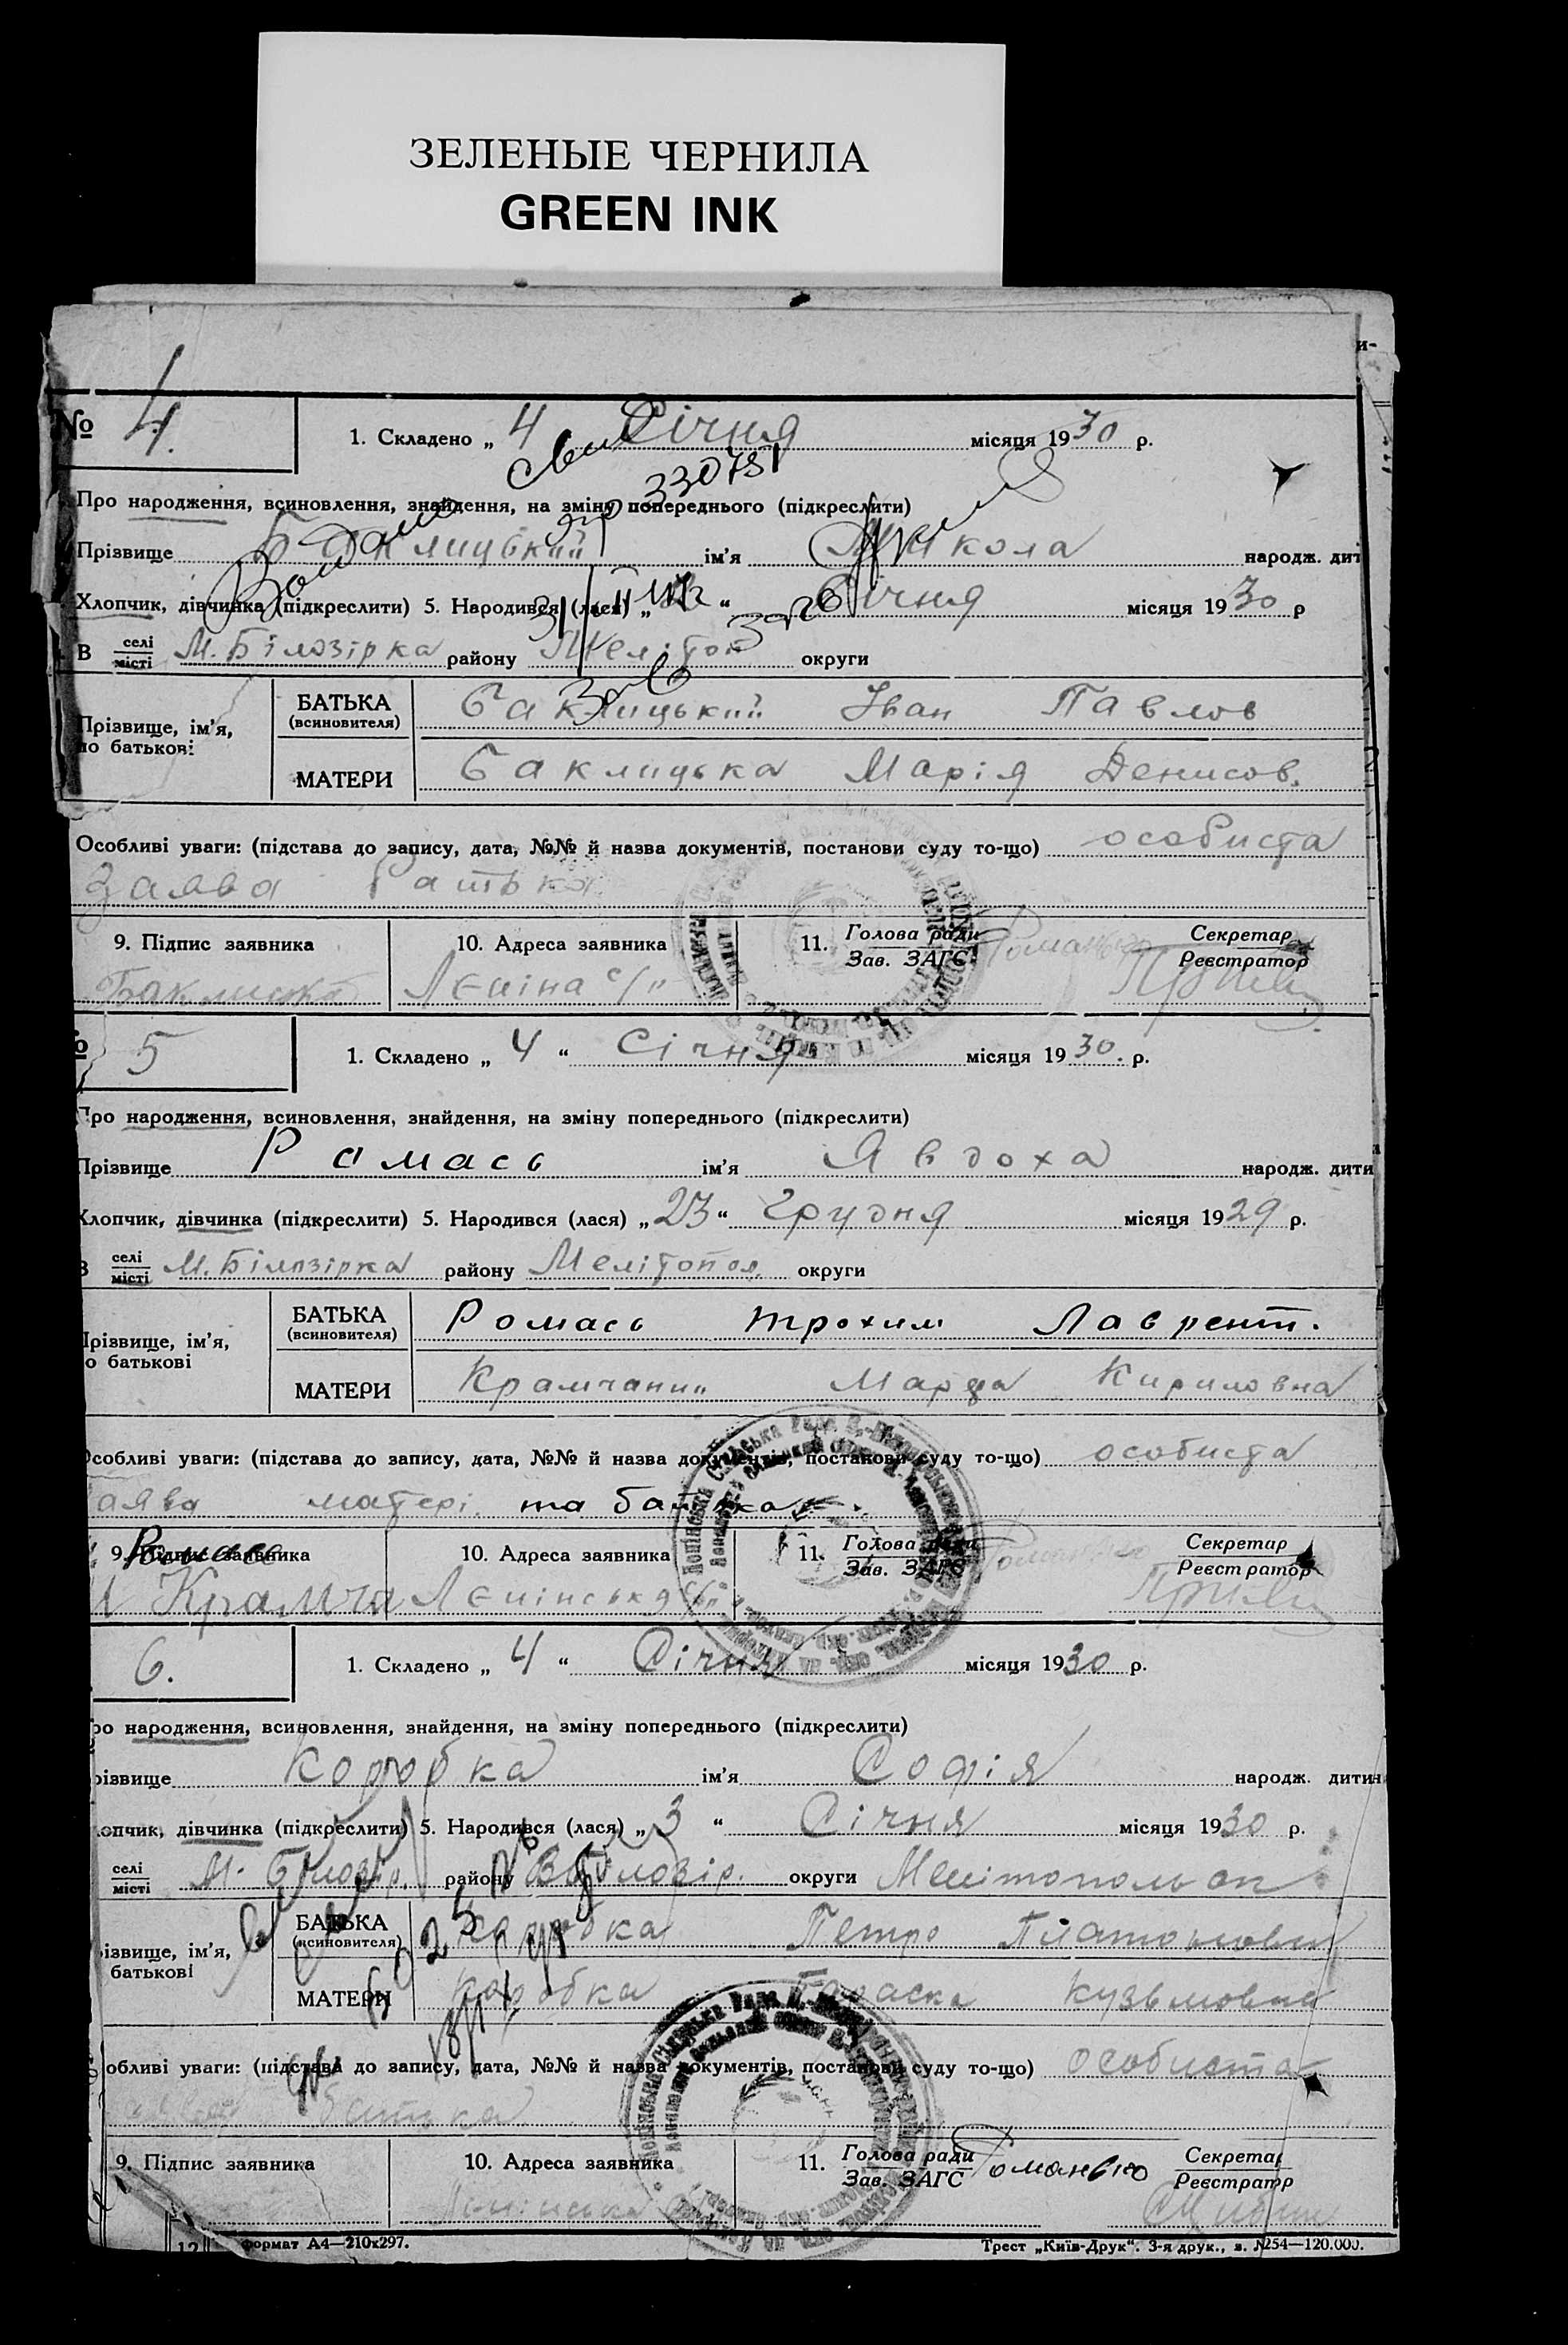 ЗЕЛЕНЫЕ ЧЕРНИЛА
GREEN INK
№ 4. 1. Складено „ 4 Січня місяця 1930 р.
Про народження, всиновлення, знайдення, на зміну попереднього (підкреслити)
Прізвище Баклицький ім'я Микола народж. дит
Хлопчик, дівчинка (підкреслити) 5. Народився (лася) „ “ Січня місяця 1930 р
В селі місті М. Білозірка району Меліто округи
Прізвище, ім'я, по батькові БАТЬКА (всиновителя) Баклицький Іван Павлов
МАТЕРИ Баклицька Марія Денисов.
Особливі уваги: (підстава до запису, дата, №№ й назва документів, постанови суду то-що) особиста
заява батька
9. Підпис заявника 10. Адреса заявника 11. Голова ради Зав. ЗАГС Секретар Реєстратор
Леніна с/
5 1. Складено „ 4 “ Січня місяця 1930. р.
Про народження, всиновлення, знайдення, на зміну попереднього (підкреслити)
Прізвище Ромась ім'я Явдоха народж. дити
Хлопчик, дівчинка (підкреслити) 5. Народився (лася) „ 23 “ Грудня місяця 1929 р.
В селі місті М. Білозірка району Мелітопол. округи
Прізвище, ім'я, по батькові БАТЬКА (всиновителя) Ромась Трохим Лаврент.
МАТЕРИ Крамчанин Марфа Кириловна
Особливі уваги: (підстава до запису, дата, №№ й назва документів, постанови суду то-що) особиста
аява матері та батька
9. Підпис заявника 10. Адреса заявника 11. Голова ради Зав. ЗАГС Секретар Реєстратор
Ромась Крамча Ленінська
6. 1. Складено „ 4 “ Січня місяця 1930 р.
ро народження, всиновлення, знайдення, на зміну попереднього (підкреслити)
різвище Коробка ім'я Софія народж. дитин
опчик, дівчинка (підкреслити) 5. Народився (лася) „ 3 “ Січня місяця 1930 р.
селі місті М. Білозір. району В Білозір. округи Мелітополь
різвище, ім'я, батькові БАТЬКА (всиновителя) Коробка Петро
МАТЕРИ Коробка Параска Кузьмовна
обливі уваги: (підстава до запису, дата, №№ й назва документів, постанови суду то-що) особиста
батька
9. Підпис заявника 10. Адреса заявника 11. Голова ради Зав. ЗАГС Секретар Реєстратр
Ленінська
формат А4—210х297. Трест „Київ-Друк“. 3-я друк., з. №254—120.000.